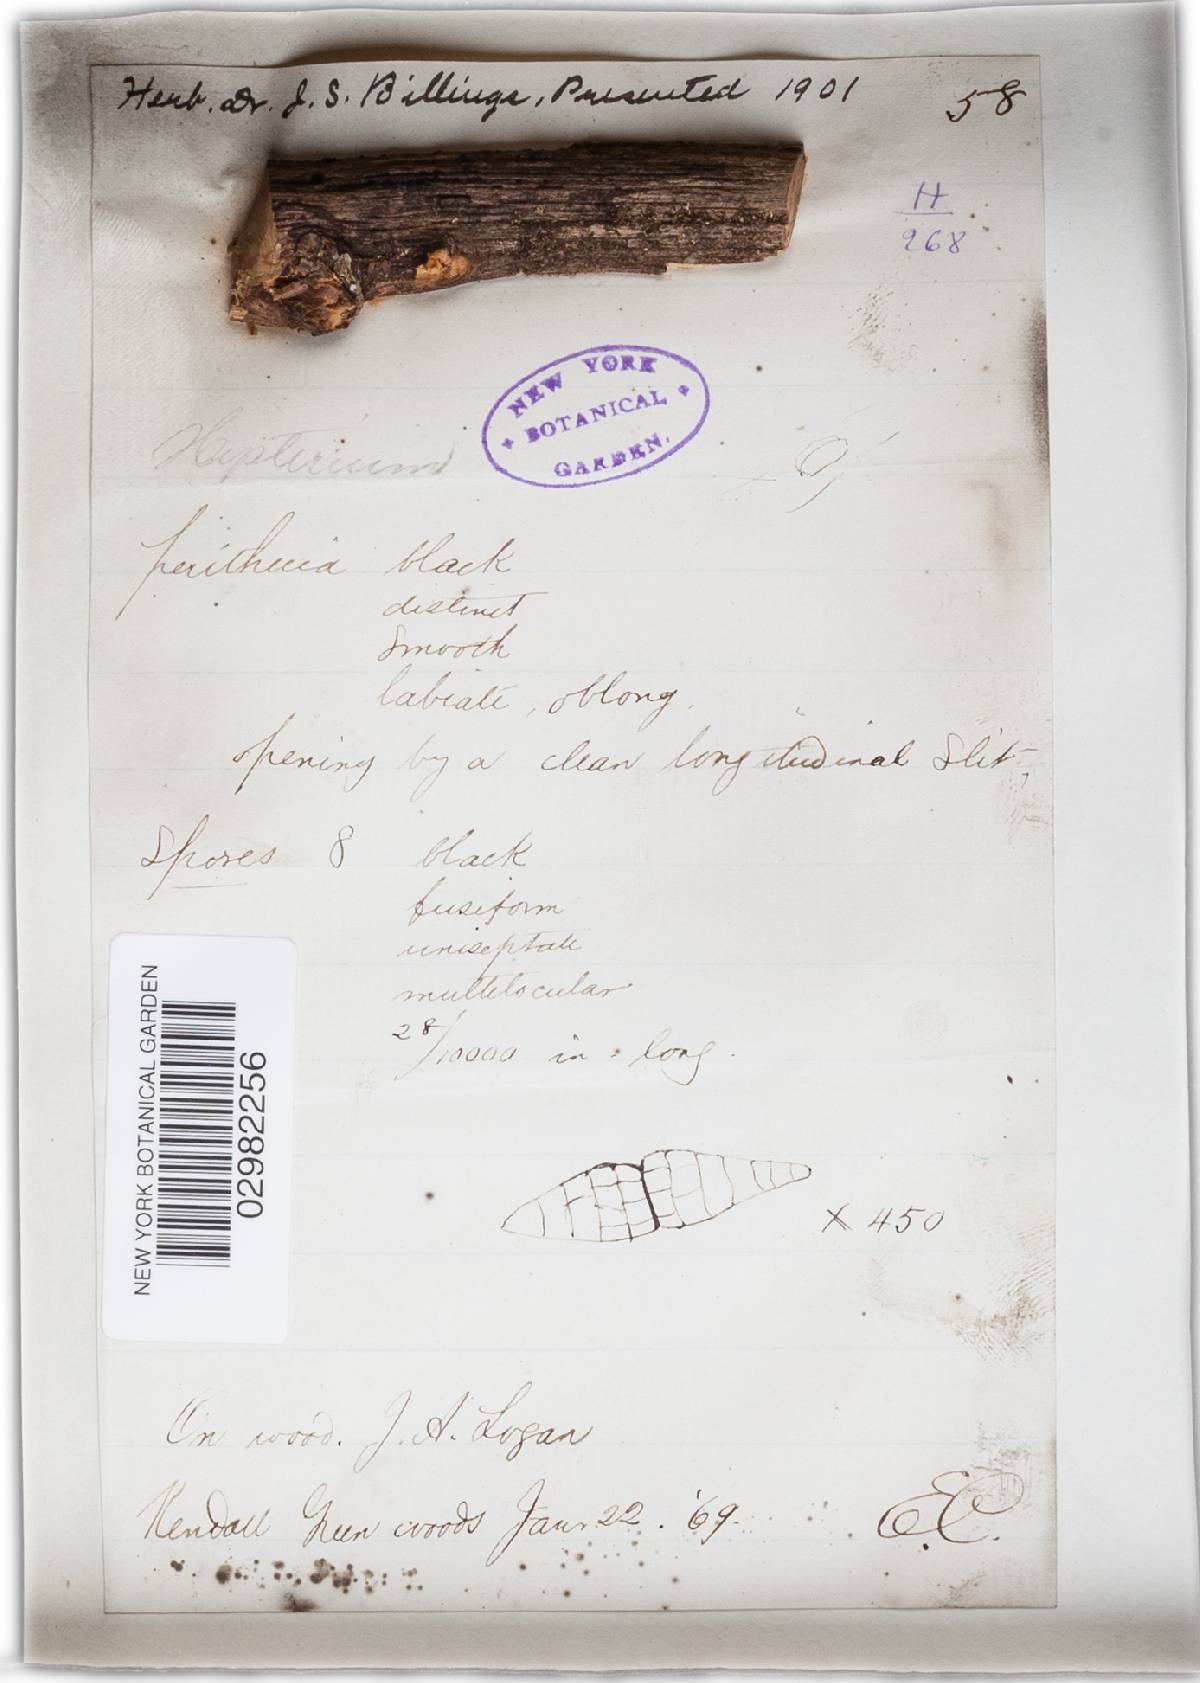 Herb. Dr. J. S. Billings, Presented 1901
58
H
268
NEW YORK
BOTANICAL
GARDEN.
perithecia black
distinct
smooth
labiate, oblong.
opening by a clean longitudinal slit,
Spores 8 black
fusiform
uniseptate
multilocular
28/10000 in. long.
NEW YORK BOTANICAL GARDEN
02982256
X 450
On wood. J. A. Logan
Kendall Green woods Jan. 22. '69.
EC.